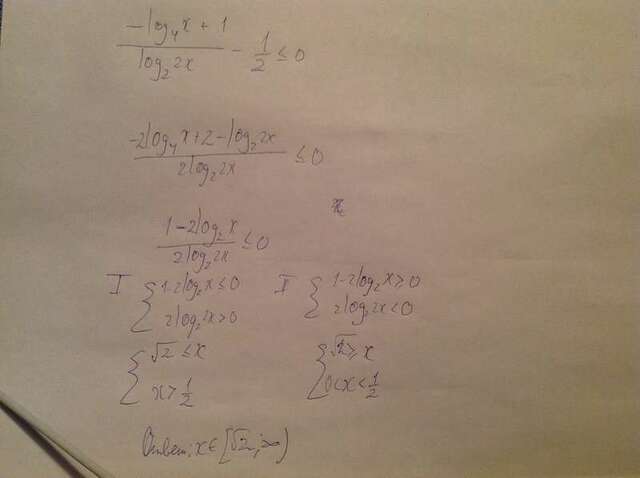 (-log₄x + 1)/(log₂2x) - 1/2 ≤ 0
(-2log₄x + 2 - log₂2x)/(2log₂2x) ≤ 0
(1 - 2log₂x)/(2log₂2x) ≤ 0
I { 1-2log₂x ≤ 0 II { 1-2log₂x ≥ 0
2log₂2x > 0 2log₂2x < 0
{ √2 ≤ x { √2 ≥ x
x > 1/2 0 < x < 1/2
Ответ: x ∈ [√2; ∞)